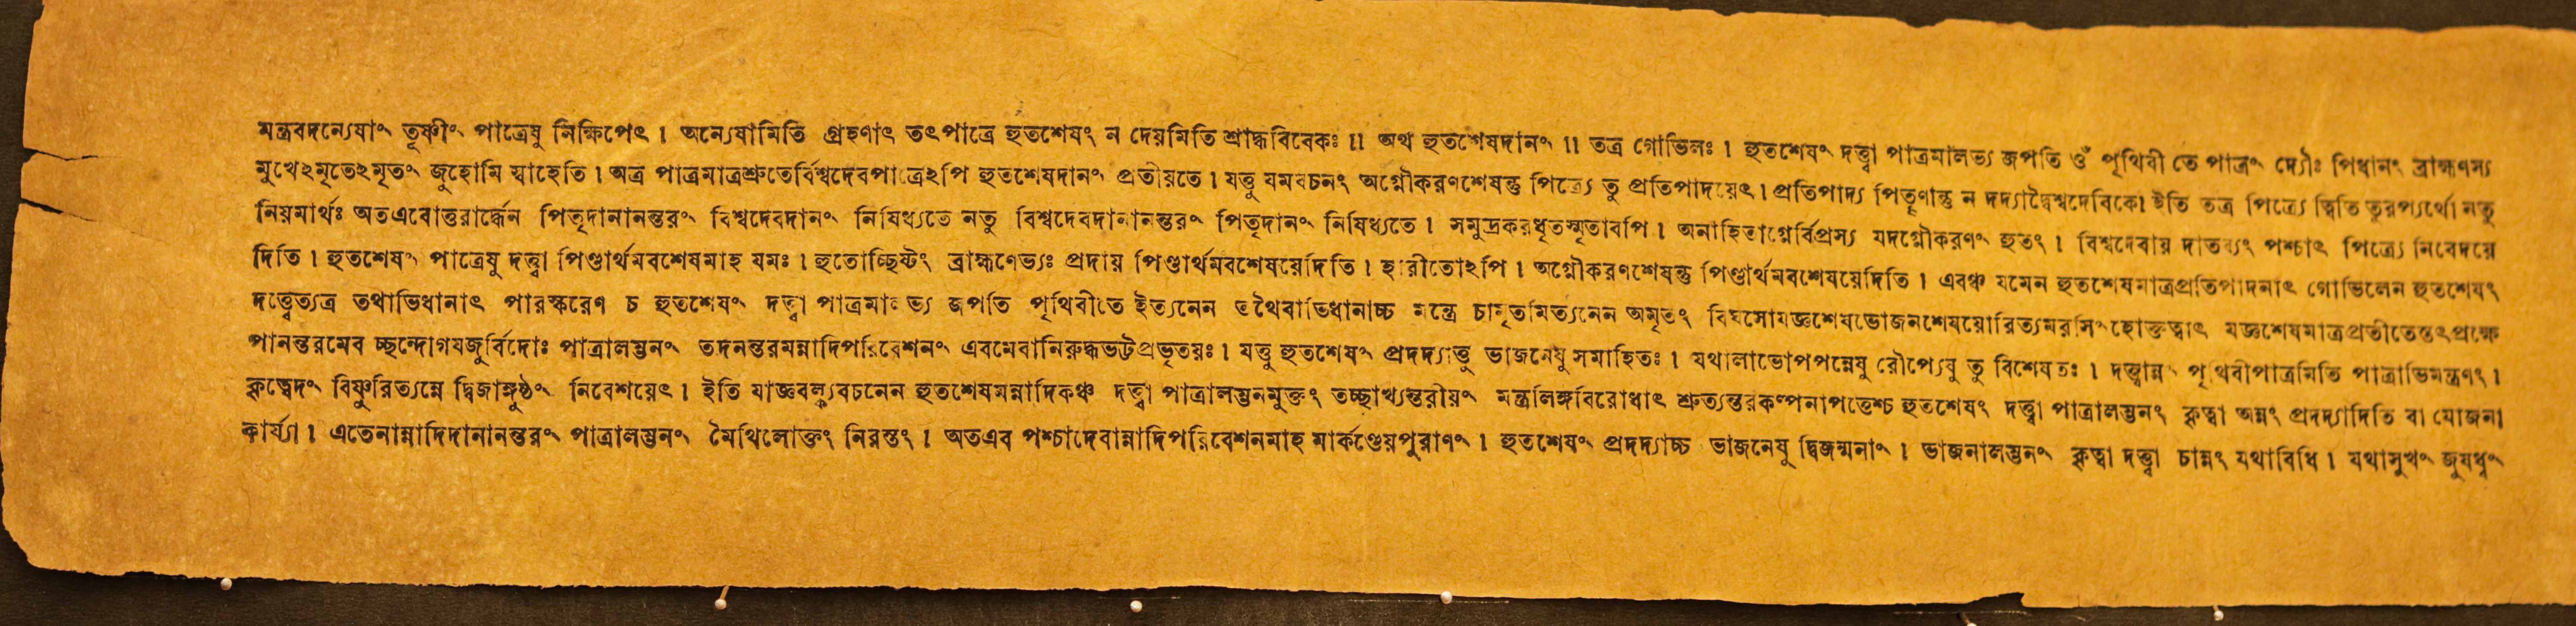 মন্ত্রবদন্যেষাং তূষ্ণীং পাত্রেষু নিক্ষিপেৎ । অন্যেষামিতি গ্রহণাৎ তৎপাত্রে হুতশেষং ন দেয়মিতি শ্রাদ্ধবিবেকঃ ॥ অথ হুতশেষদানং ॥ তত্র গোভিলঃ । হুতশেষং দত্ত্বা পাত্রমালভ্য জপতি ওঁ পৃথিবী তে পাত্রং দ্যৌঃ পিধানং ব্রাহ্মণস্য
মুখেঽমৃতেঽমৃতং জুহোমি স্বাহেতি । অত্র পাত্রমাত্রশ্রুতের্বিশ্বদেবপাত্রেঽপি হুতশেষদানং প্রতীয়তে । যত্তু যমবচনং অগ্নৌকরণশেষন্তু পিত্র্যে তু প্রতিপাদয়েৎ । প্রতিপাদ্য পিতৄণান্তু ন দদ্যাদ্বৈশ্বদেবিকে। ইতি তত্র পিত্র্যে ত্বিতি তুরপ্যর্থো নতু
নিয়মার্থঃ অতএবোত্তরার্দ্ধেন পিতৃদানানন্তরং বিশ্বদেবদানং নিষিধ্যতে নতু বিশ্বদেবদানানন্তরং পিতৃদানং নিষিধ্যতে । সমুদ্রকরধৃতস্মৃতাবপি । অনাহিতাগ্নের্বিপ্রস্য যদগ্নৌকরণং হুতং । বিশ্বদেবায় দাতব্যং পশ্চাৎ পিত্র্যে নিবেদয়ে
দিতি । হুতশেষং পাত্রেষু দত্ত্বা পিণ্ডার্থমবশেষমাহ যমঃ । হুতোচ্ছিষ্টং ব্রাহ্মণেভ্যঃ প্রদায় পিণ্ডার্থমবশেষয়েদিতি । হারীতোঽপি । অগ্নৌকরণশেষন্তু পিণ্ডার্থমবশেষয়েদিতি । এবঞ্চ যমেন হুতশেষমাত্রপ্রতিপাদনাৎ গোভিলেন হুতশেষং
দত্ত্বেত্যত্র তথাভিধানাৎ পারস্করেণ চ হুতশেষং দত্ত্বা পাত্রমালভ্য জপতি পৃথিবীতে ইত্যনেন তথৈবাভিধানাচ্চ মন্ত্রে চামৃতমিত্যনেন অমৃতং বিঘসোযজ্ঞশেষভোজনশেষয়োরিত্যমরসিংহোক্তত্বাৎ যজ্ঞশেষমাত্রপ্রতীতেস্তৎপ্রক্ষে
পানন্তরমেব চ্ছন্দোগযজুর্বিদোঃ পাত্রালম্ভনং তদনন্তরমন্নাদিপরিবেশনং এবমেবানিরুদ্ধভট্টপ্রভৃতয়ঃ । যত্তু হুতশেষং প্রদদ্যাত্তু ভাজনেষু সমাহিতঃ । যথালাভোপপন্নেষু রৌপ্যেষু তু বিশেষতঃ । দত্ত্বান্নং পৃথিবীপাত্রমিতি পাত্রাভিমন্ত্রণং ।
কৃত্বেদং বিষ্ণুরিত্যন্নে দ্বিজাঙ্গুষ্ঠং নিবেশয়েৎ । ইতি যাজ্ঞবল্ক্যবচনেন হুতশেষমন্নাদিকঞ্চ দত্ত্বা পাত্রালম্ভনমুক্তং তচ্ছাখ্যন্তরীয়ং মন্ত্রলিঙ্গবিরোধাৎ শ্রুত্যন্তরকল্পনাপত্তেশ্চ হুতশেষং দত্ত্বা পাত্রালম্ভনং কৃত্বা অন্নং প্রদদ্যাদিতি বা যোজনা
কার্য্যা । এতেনান্নাদিদানানন্তরং পাত্রালম্ভনং মৈথিলোক্তং নিরস্তং । অতএব পশ্চাদেবান্নাদিপরিবেশনমাহ মার্কণ্ডেয়পুরাণং । হুতশেষং প্রদদ্যাচ্চ ভাজনেষু দ্বিজন্মনাং । ভাজনালম্ভনং কৃত্বা দত্ত্বা চান্নং যথাবিধি । যথাসুখং জুষধ্বং